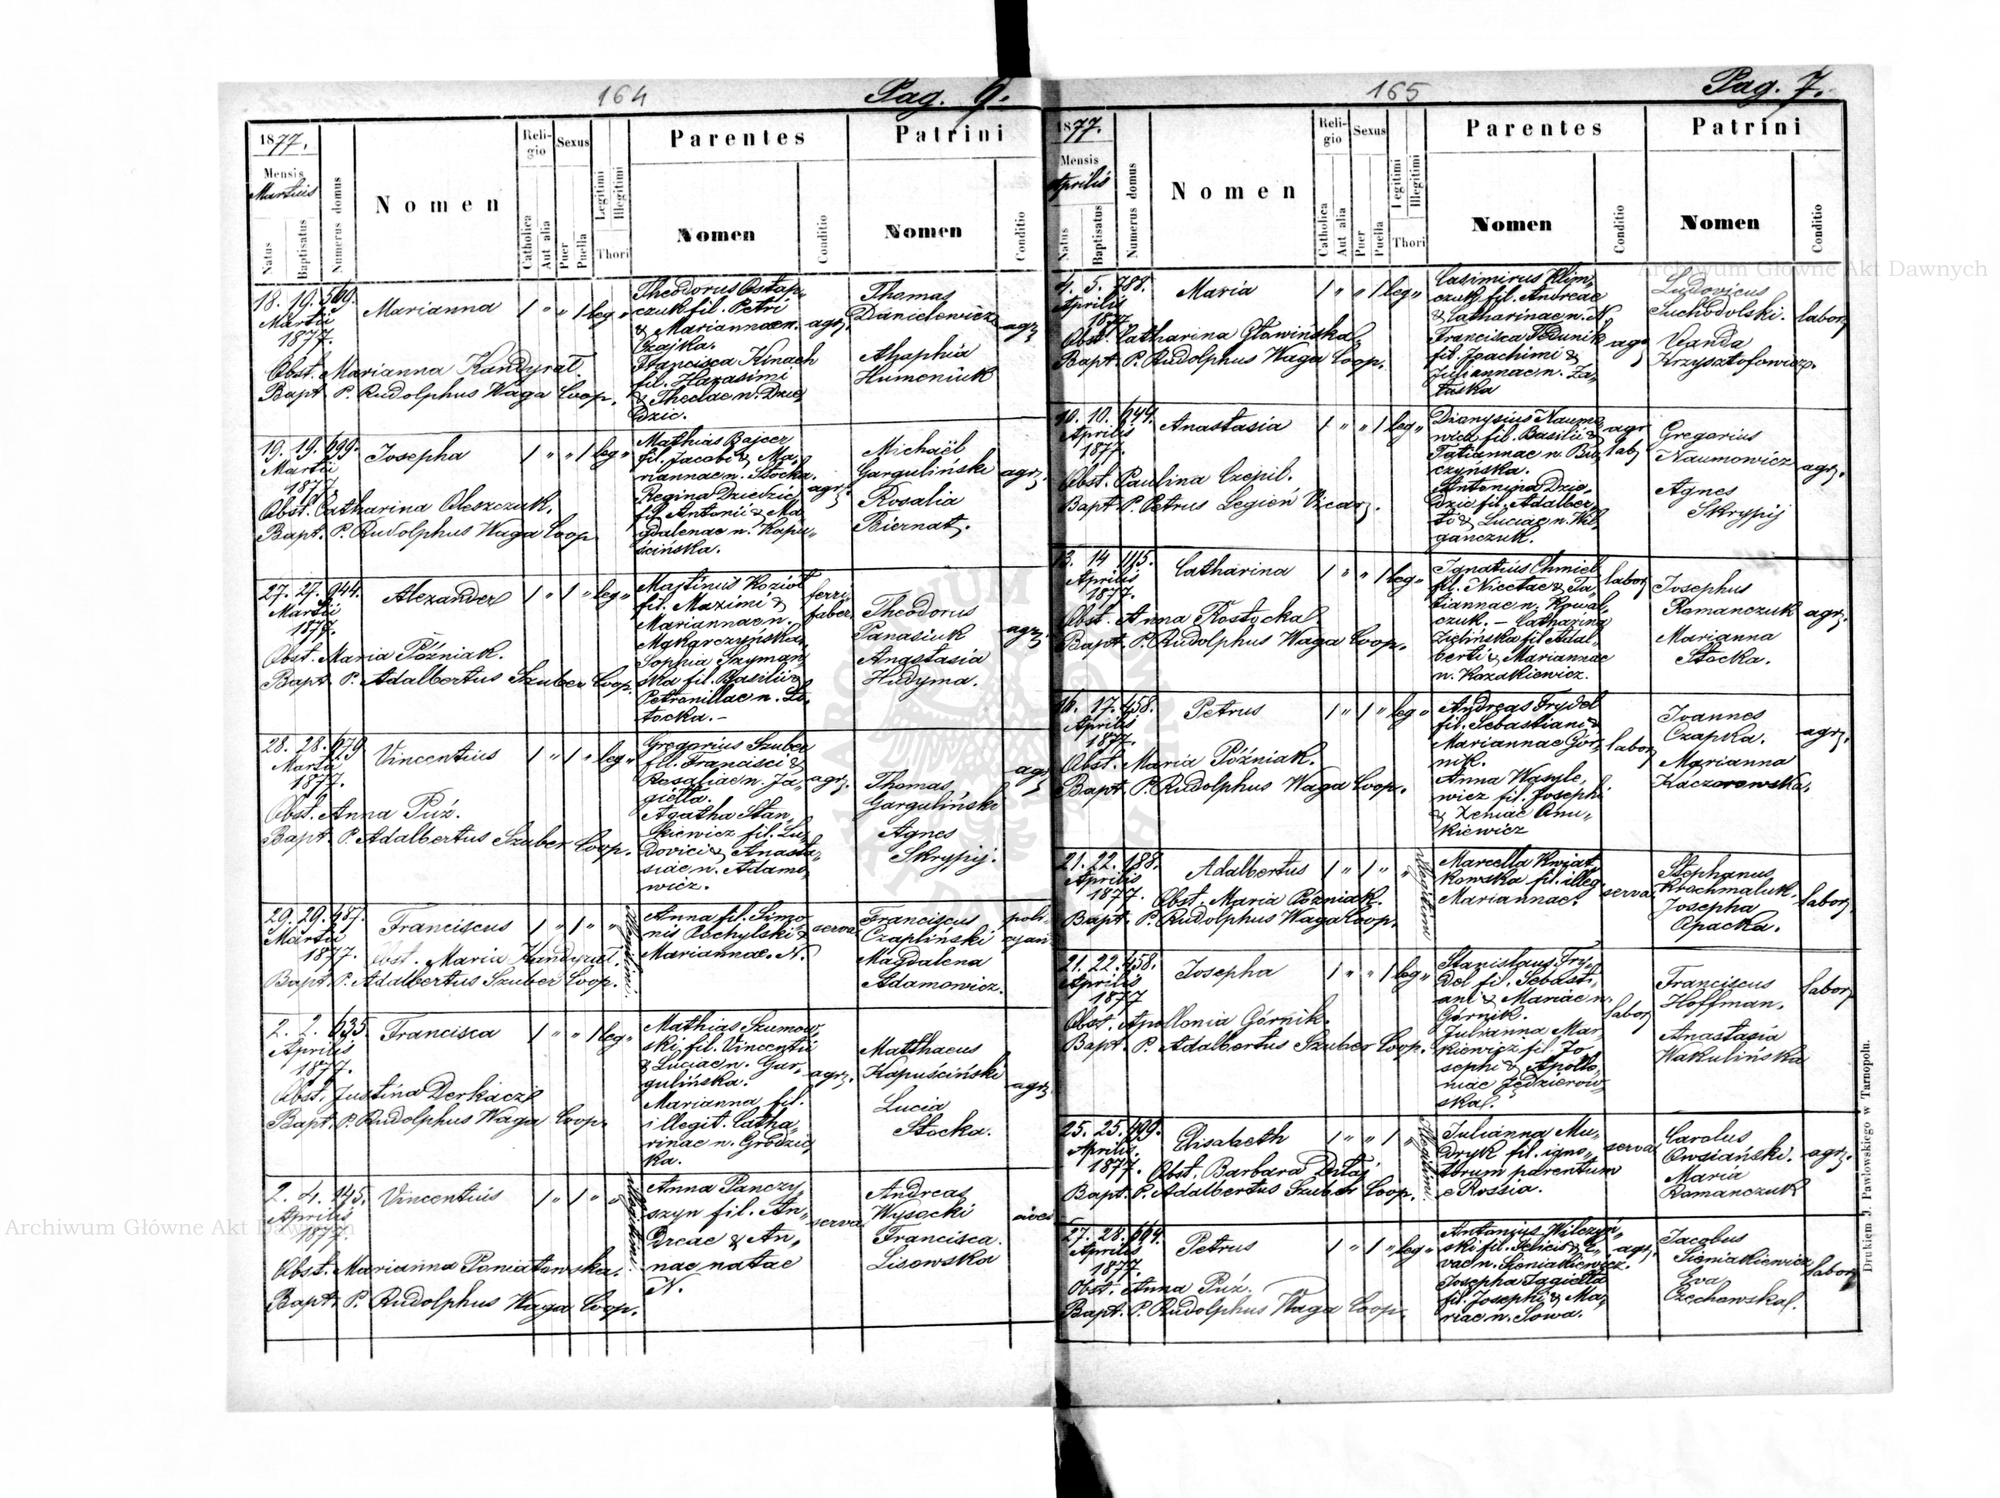 164
Pag. 6.
1877.
Mensis
Martius
Natus
Baptisatus
Numerus domus
Nomen
Religio
Catholica
Aut alia
Sexus
Puer
Puella
Legitimi
Illegitimi
Thori
Parentes
Nomen
Conditio
Patrini
Nomen
Conditio
18. 19. 569.
Martii
1877.
Marianna
1 " " 1 leg "
Obst. Marianna Kandyrat.
Bapt. P. Rudolphus Waga Coop.
Theodorus Ostap-
czuk fil. Petri
& Mariannae n.
Czajka.
Francisca Kinach
fil. Harasimi
& Theclae n. Dzie
dzic.
agr.
Thomas
Danielewicz
Ahaphia
Humeniuk
agr.
19. 19. 699.
Martii
1877.
Josepha
1 " " 1 leg "
Obst. Catharina Oleszczuk.
Bapt. P. Rudolphus Waga Coop
Mathias Bajcer
fil. Jacobi & Ma-
riannae n. Stocka.
Regina Dziedzic
fil. Antonii & Ma
gdalenae n. Kapu-
ścińska.
agr.
Michaël
Garguliński
Rosalia
Biernat.
agr.
27. 27. 944.
Martii
1877.
Alexander
1 " 1 " leg "
Obst. Maria Późniak.
Bapt. P. Adalbertus Szuber Coop.
Martinus Kozioł
fil. Maximi &
Mariannae n.
Makarczyńska.
Sophia Szyman
ska fil. Basilii &
Petronillae n.
tocka.-
ferri
faber.
Theodorus
Panasiuk
Anastasia
Hudyma.
agr.
28. 28. 679
Martii
1877.
Vincentius
1 " 1 " leg "
Obst. Anna Púż.
Bapt. P. Adalbertus Szuber Coop.
Gregorius Szuber
fil. Francisci &
Rosaliae n. Ja-
giełła.
Agatha Stan-
kiewicz fil. Lu-
dovici & Anasta-
siae n. Adamo
wicz.
agr.
Thomas
Garguliński
Agnes
Skrypij.
agr.
29. 29. 487.
Martii
1877.
Franciscus
1 " 1 " "
Illegitimi.
Obst. Maria Kandyrat.
Bapt. P. Adalbertus Szuber Coop.
Anna fil. Simo
nis Pochylski &
Mariannae. N.
serva.
Franciscus
Czapliński
Magdalena
Adamowicz.
poli-
cjan
2. 2. 635.
Aprilis
1877.
Francisca
1 " " 1 leg "
Obst. Justina Derkacz
Bapt. P. Rudolphus Waga Coop.
Mathias Szumow-
ski, fil. Vincentii
& Luciae n. Gar-
gulińska.
Marianna fil.
illegit. Catha-
rinae n. Grodzic
ka.
agr.
Matthaeus
Kapuściński
Lucia
Stocka.
agr.
2. 4. 145.
Aprilis
1877.
Vincentius
1 " 1 " "
Illegitimi.
Obst. Marianna Poniatowska.
Bapt. P. Rudolphus Waga Coop.
Anna Panczy
szyn fil. An-
dreae & An-
nae natae
N.
serva.
Andreas
Wysocki
Francisca.
Lisowska
165
Pag. 7.
1877.
Mensis
Aprilis
Natus
Baptisatus
Numerus domus
Nomen
Religio
Catholica
Aut alia
Sexus
Puer
Puella
Legitimi
Illegitimi
Thori
Parentes
Nomen
Conditio
Patrini
Nomen
Conditio
4. 5. 788.
Aprilis
1877.
Maria
1 " " 1 leg "
Obst. Catharina Głowińska.
Bapt. P. Rudolphus Waga Coop.
Casimirus Klim-
czuk fil. Andreae
& Catharinae n. N
Francisca Fedunik
fil. Joachimi &
Juliannae n. Za-
łuska
agr.
Ludovicus
Suchodolski.
Vanda
Krzysztofowicz.
labor.
10. 10. 644.
Aprilis
1877.
Anastasia
1 " " 1 leg "
Obst. Paulina Czepil.
Bapt. P. Petrus Legień Vicar.
Dionysius Naumo
wicz fil. Basilii &
Tatiannae n. Bu
czyńska.
Antonina Dzie-
dzic fil. Adalber
ti & Luciae n.
ganczuk.
agr
lab.
Gregorius
Naumowicz
Agnes
Skrypij
agr.
13. 14 415.
Aprilis
1877.
Catharina
1 " " 1 leg "
Obst. Anna Rostocka.
Bapt. P. Rudolphus Waga Coop.
Ignatius Chmiel
fil. Nicetae & Ta-
tiannae n. Kowal-
czuk. - Catharina
Zielińska fil. Adal-
berti & Mariannae
n. Kozakiewicz.
labor
Josephus
Romanczuk
Marianna
Stocka.
agr.
16. 17. 458.
Aprilis
1877.
Petrus
1 " 1 " leg "
Obst. Maria Późniak.
Bapt. P. Rudolphus Waga Coop.
Andreas Frydel
fil. Sebastiani &
Mariannae Gór-
nik.
Anna Wasyle-
wicz fil. Josephi
& Xeniae Onu-
kiewicz
labor
Joannes
Czapka.
Marianna
Kaczorowska.
agr.
21. 22. 188.
Aprilis
1877.
Adalbertus
1 " 1 " "
Illegitimi
Obst. Maria Póżniak.
Bapt. P. Rudolphus Waga Coop.
Marcella Kwiat
kowska fil. illeg.
Mariannae.
serva.
Stephanus
Krochmaluk
Josepha
Opacka.
labor.
21. 22. 458.
Aprilis
1877
Josepha
1 " " 1 leg "
Obst. Apollonia Górnik.
Bapt. P. Adalbertus Szuber Coop.
Stanislaus Fry-
del fil. Sebasti-
ani & Mariae n.
Górnik.
Julianna Mar-
kiewicz fil. Jo
sephi & Apollo-
niae Jędzierow-
ska.
labor
Franciscus
Hoffman.
Anastasia
Wakulińska
labor.
25. 25. 499.
Aprilis.
1877.
Elisabeth
1 " " 1 "
Illegitimi.
Obst. Barbara Dutaj
Bapt. P. Adalbertus Szuber Coop.
Julianna Mu-
dryk fil. igno-
torum parentum
e Rossia.
serva.
Carolus
Owsiański.
Maria
Romanczuk
agr.
27. 28. 664.
Aprilis
1877
Petrus
1 " 1 " leg "
Obst. Anna Púż.
Bapt. P. Rudolphus Waga Coop.
Antonius Wilczyń-
ski fil. Felicis & E-
vae n. Sieniakiewicz.
Josepha Jagiełła
fil. Josephi & Ma-
riae n. Sowa.
agr.
Jacobus
Sieniakiewicz
Eva
Czechowska.
labor
Drukiem J. Pawłowskiego w Tarnopolu.
Archiwum Główne Akt Dawnych
Archiwum Główne Akt Dawnych